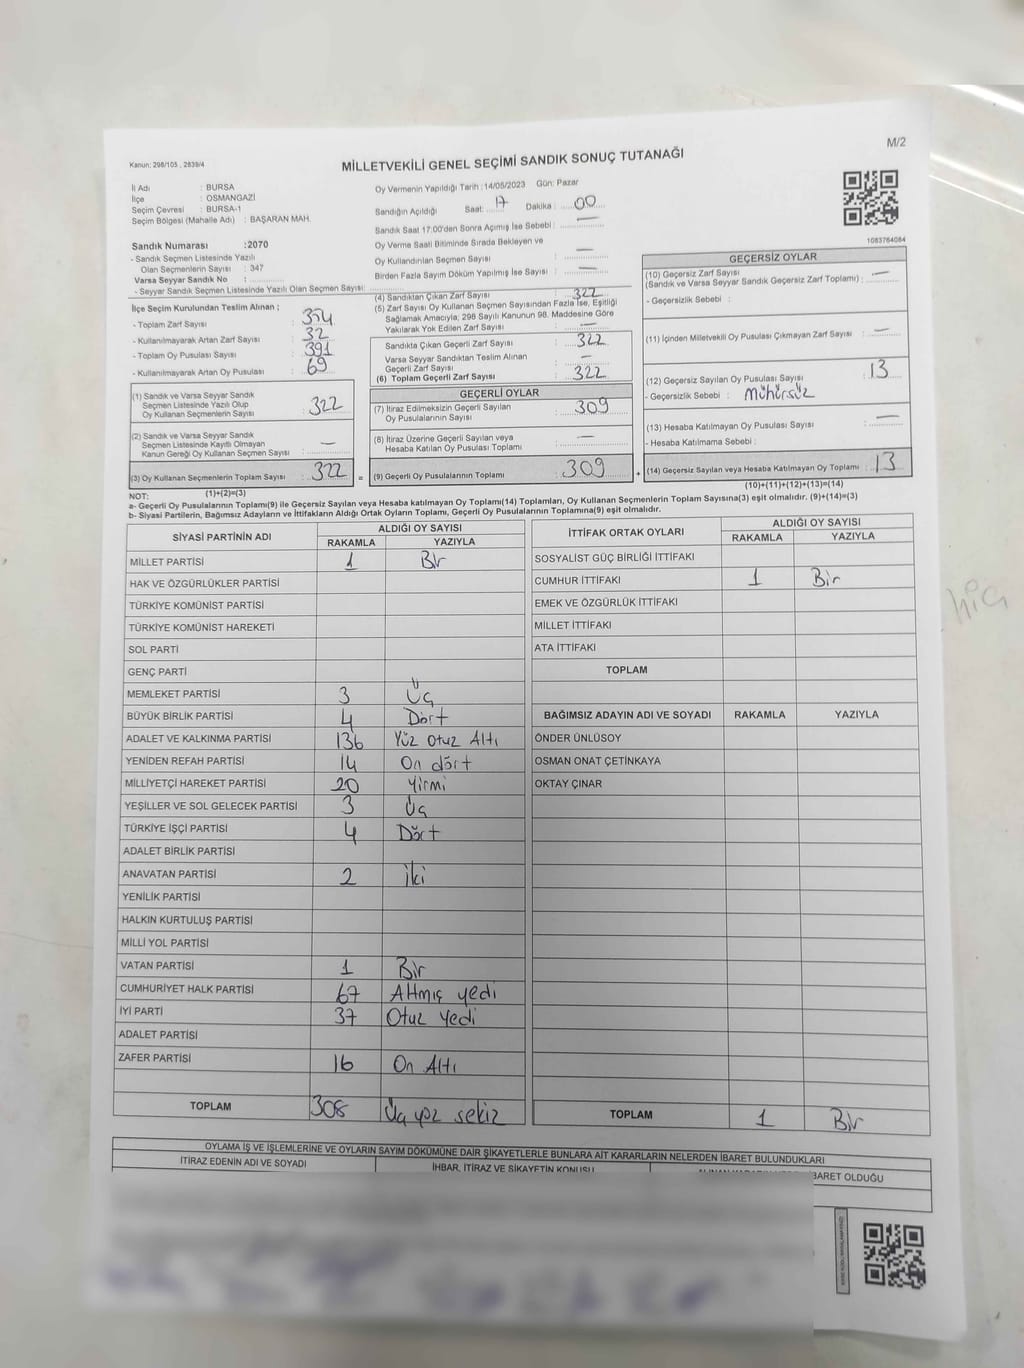 M/2
Kanun: 298/105 , 2839/4
MİLLETVEKİLİ GENEL SEÇİMİ SANDIK SONUÇ TUTANAĞI
İl Adı : BURSA
İlçe : OSMANGAZİ
Seçim Çevresi : BURSA-1
Seçim Bölgesi (Mahalle Adı) : BAŞARAN MAH.
Sandık Numarası :2070
- Sandık Seçmen Listesinde Yazılı
Olan Seçmenlerin Sayısı : 347
Varsa Seyyar Sandık No :
- Seyyar Sandık Seçmen Listesinde Yazılı Olan Seçmen Sayısı:
Oy Vermenin Yapıldığı Tarih :14/05/2023 Gün: Pazar
Sandığın Açıldığı Saat: 17 Dakika : 00
Sandık Saat 17:00'den Sonra Açımış İse Sebebi : —
Oy Verme Saati Bitiminde Sırada Bekleyen ve
Oy Kullandırılan Seçmen Sayısı : —
Birden Fazla Sayım Döküm Yapılmış İse Sayısı : —
1083764084
İlçe Seçim Kurulundan Teslim Alınan ;
- Toplam Zarf Sayısı : 354
- Kullanılmayarak Artan Zarf Sayısı : 32
- Toplam Oy Pusulası Sayısı : 391
- Kullanılmayarak Artan Oy Pusulası : 69
(1) Sandık ve Varsa Seyyar Sandık
Seçmen Listesinde Yazılı Olup
Oy Kullanan Seçmenlerin Sayısı : 322
(2) Sandık ve Varsa Seyyar Sandık
Seçmen Listesinde Kayıtlı Olmayan
Kanun Gereği Oy Kullanan Seçmen Sayısı : —
(3) Oy Kullanan Seçmenlerin Toplam Sayısı : 322
(1)+(2)=(3)
(4) Sandıktan Çıkan Zarf Sayısı : 322
(5) Zarf Sayısı Oy Kullanan Seçmen Sayısından Fazla İse, Eşitliği
Sağlamak Amacıyla; 298 Sayılı Kanunun 98. Maddesine Göre
Yakılarak Yok Edilen Zarf Sayısı : —
Sandıkta Çıkan Geçerli Zarf Sayısı : 322
Varsa Seyyar Sandıktan Teslim Alınan
Geçerli Zarf Sayısı : —
(6) Toplam Geçerli Zarf Sayısı : 322
GEÇERLİ OYLAR
(7) İtiraz Edilmeksizin Geçerli Sayılan
Oy Pusulalarının Sayısı : 309
(8) İtiraz Üzerine Geçerli Sayılan veya
Hesaba Katılan Oy Pusulası Sayısı : —
= (9) Geçerli Oy Pusulalarının Toplamı : 309
GEÇERSİZ OYLAR
(10) Geçersiz Zarf Sayısı
(Sandık ve Varsa Seyyar Sandık Geçersiz Zarf Toplamı) : —
- Geçersizlik Sebebi :
(11) İçinden Milletvekili Oy Pusulası Çıkmayan Zarf Sayısı : —
(12) Geçersiz Sayılan Oy Pusulası Sayısı : 13
- Geçersizlik Sebebi : Mühürsüz
(13) Hesaba Katılmayan Oy Pusulası Sayısı : —
- Hesaba Katılmama Sebebi :
+ (14) Geçersiz Sayılan veya Hesaba Katılmayan Oy Toplamı : 13
(10)+(11)+(12)+(13)=(14)
NOT:
a- Geçerli Oy Pusulalarının Toplamı(9) ile Geçersiz Sayılan veya Hesaba katılmayan Oy Toplamı(14) Toplamları, Oy Kullanan Seçmenlerin Toplam Sayısına(3) eşit olmalıdır. (9)+(14)=(3)
b- Siyasi Partilerin, Bağımsız Adayların ve İttifakların Aldığı Ortak Oyların Toplamı, Geçerli Oy Pusulalarının Toplamına(9) eşit olmalıdır.
SİYASİ PARTİNİN ADI ALDIĞI OY SAYISI
RAKAMLA YAZIYLA
MİLLET PARTİSİ 1 Bir
HAK VE ÖZGÜRLÜKLER PARTİSİ
TÜRKİYE KOMÜNİST PARTİSİ
TÜRKİYE KOMÜNİST HAREKETİ
SOL PARTİ
GENÇ PARTİ
MEMLEKET PARTİSİ 3 Üç
BÜYÜK BİRLİK PARTİSİ 4 Dört
ADALET VE KALKINMA PARTİSİ 136 Yüz Otuz Altı
YENİDEN REFAH PARTİSİ 14 On dört
MİLLİYETÇİ HAREKET PARTİSİ 20 Yirmi
YEŞİLLER VE SOL GELECEK PARTİSİ 3 Üç
TÜRKİYE İŞÇİ PARTİSİ 4 Dört
ADALET BİRLİK PARTİSİ
ANAVATAN PARTİSİ 2 İki
YENİLİK PARTİSİ
HALKIN KURTULUŞ PARTİSİ
MİLLİ YOL PARTİSİ
VATAN PARTİSİ 1 Bir
CUMHURİYET HALK PARTİSİ 67 Altmış yedi
İYİ PARTİ 37 Otuz Yedi
ADALET PARTİSİ
ZAFER PARTİSİ 16 On Altı
TOPLAM 308 Üç yüz sekiz
İTTİFAK ORTAK OYLARI ALDIĞI OY SAYISI
RAKAMLA YAZIYLA
SOSYALİST GÜÇ BİRLİĞİ İTTİFAKI
CUMHUR İTTİFAKI 1 Bir
EMEK VE ÖZGÜRLÜK İTTİFAKI
MİLLET İTTİFAKI
ATA İTTİFAKI
TOPLAM
BAĞIMSIZ ADAYIN ADI VE SOYADI RAKAMLA YAZIYLA
ÖNDER ÜNLÜSOY
OSMAN ONAT ÇETİNKAYA
OKTAY ÇINAR
TOPLAM 1 Bir
OYLAMA İŞ VE İŞLEMLERİNE VE OYLARIN SAYIM DÖKÜMÜNE DAİR ŞİKAYETLERLE BUNLARA AİT KARARLARIN NELERDEN İBARET BULUNDUKLARI
İTİRAZ EDENİN ADI VE SOYADI İHBAR, İTİRAZ VE ŞİKAYETİN KONUSU İBARET OLDUĞU